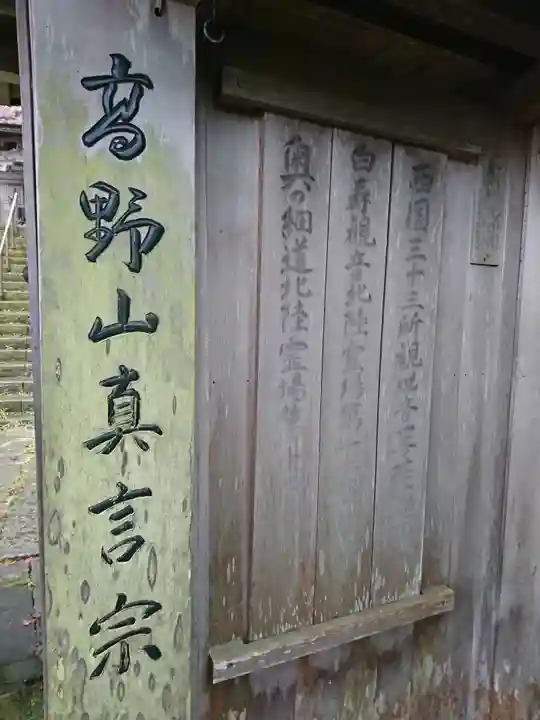 西国三十三所観世音
白寿観音北陸霊場第
奥の細道北陸霊場第
高野山真言宗